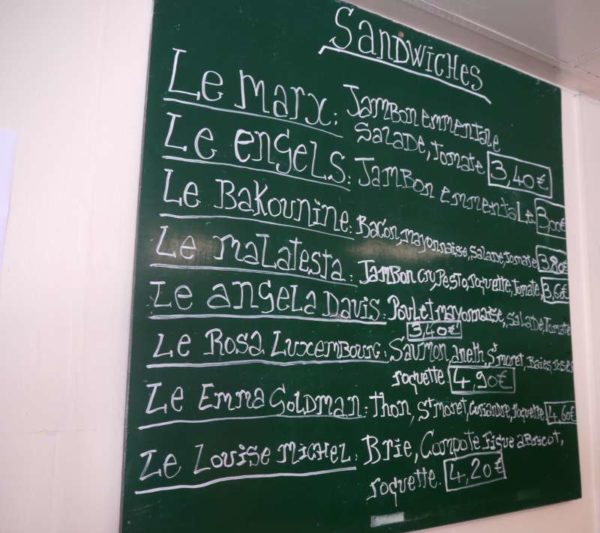 SANDWICHES
Le marx: Jambon emmentale
Salade, tomate 3,40€
Le engels: Jambon emmental 3,00€
Le Bakounine: Bacon, mayonnaise, Salade, tomate 3,80€
Le malatesta: Jambon cru, Pesto, roquette, tomate 3,60€
Le angela Davis: Poulet, mayonnaise, Salade Tomate
3,40€
Le Rosa Luxembourg: Saumon, aneth, St moret, Baies roses
roquette 4,90€
Le Emma Goldman: Thon, St moret, Coriandre, roquette 4,60€
Le Louise Michel: Brie, Compote figue abricot,
roquette. 4,20€